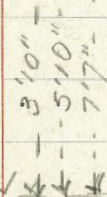 - 3'10" -
- 5'10" -
- 7'7" -